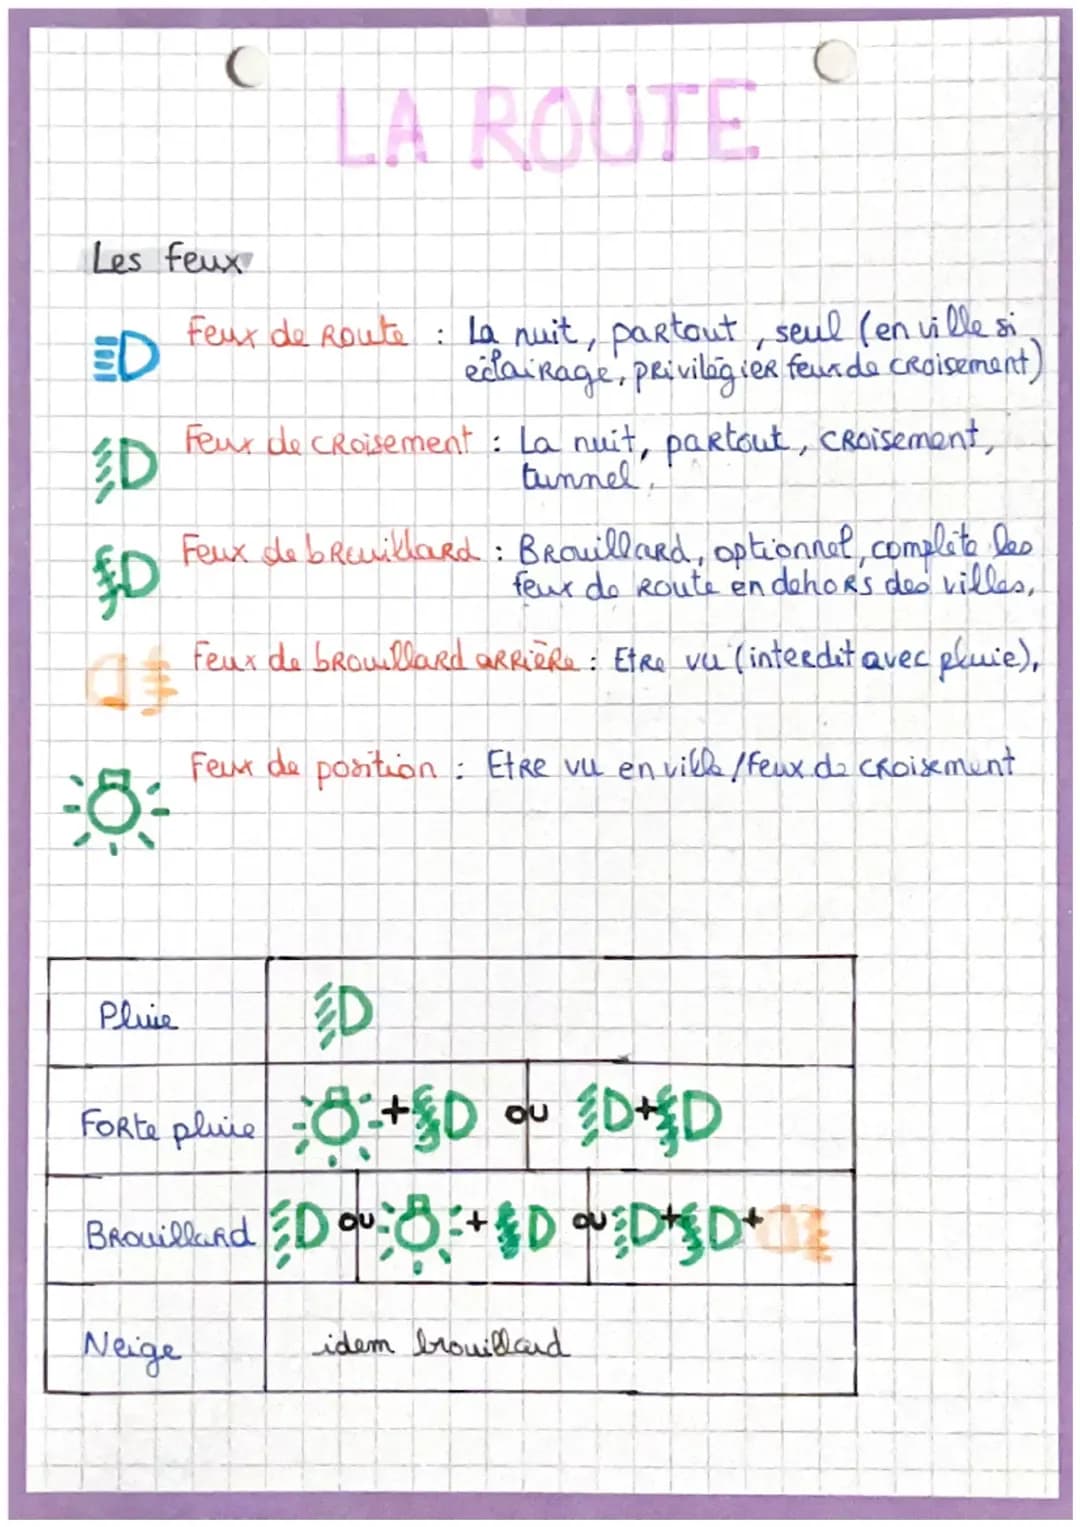 LA ROUTE
Les feux
Feux de Route : La nuit, partout, seul (en ville si
éclairage, privilégier feux de croisement)
Feux de croisement : La nuit, partout, croisement,
tunnel.
Feux de brouillard : Brouillard, optionnel, complète les
feux de Route en dehors des villes,
Feux de brouillard arrière : Etre vu (interdit avec pluie),
Feux de position : Etre vu en ville / Feux de croisement
Pluie
Forte pluie + ou +
Brouillard ou + ou + +
Neige idem brouillard